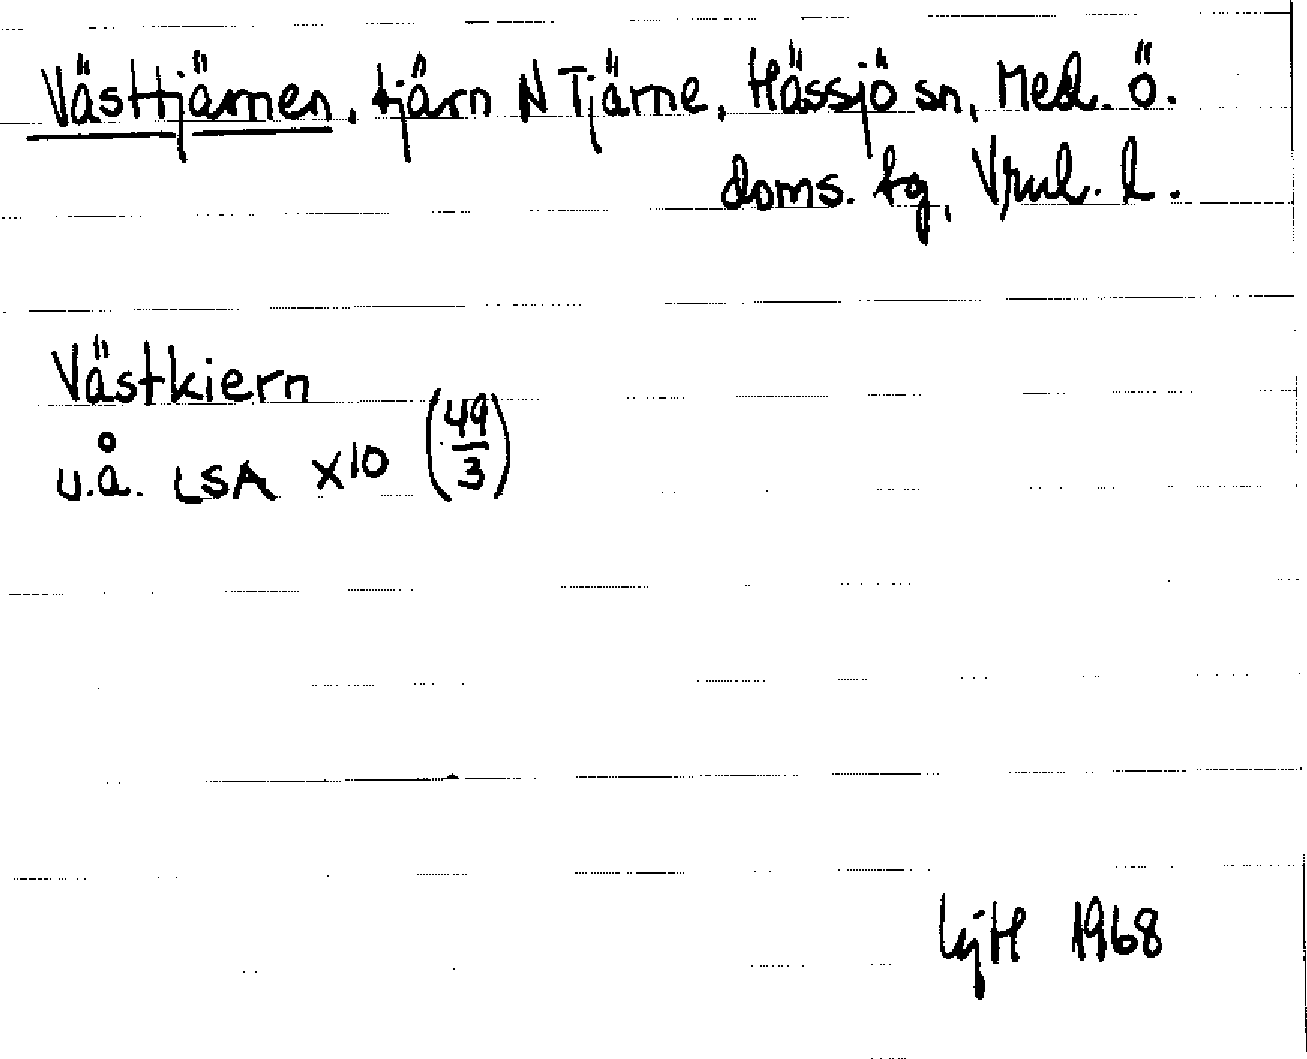 Västtjärnen, tjärn N Tjärne, Hässjö sn, Med. ö.
doms. tg, Vrnl. l.
Västkiern
u.å. LSA X10 (49/3)
1968